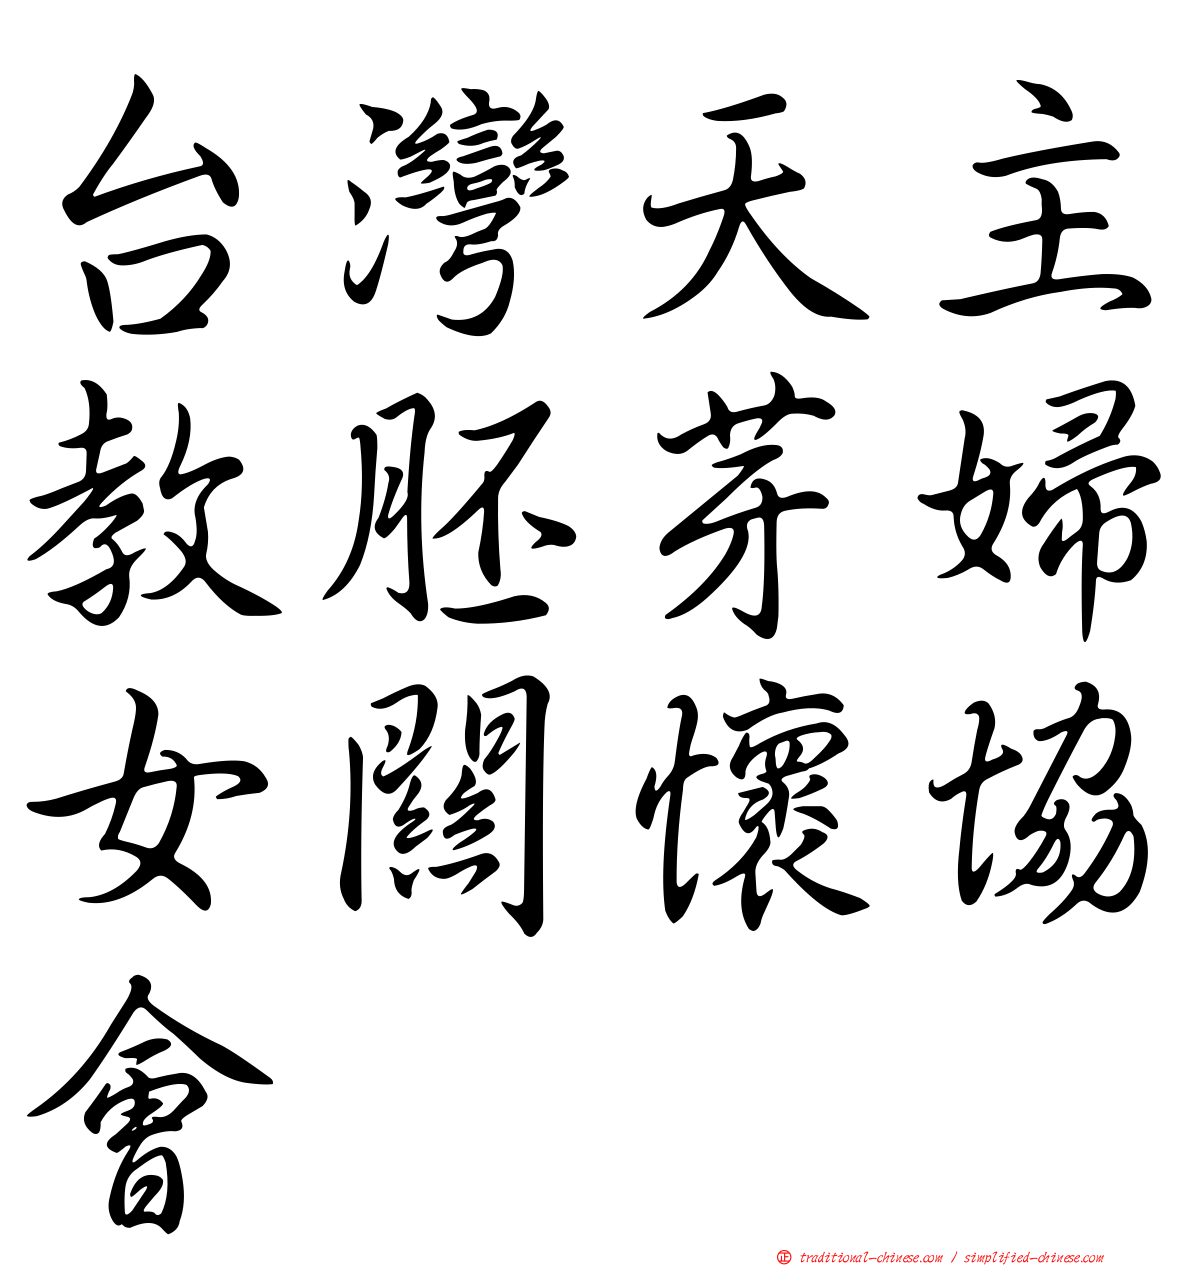 台灣天主
教胚芽婦
女關懷協
會
㊣ traditional-chinese.com / simplified-chinese.com